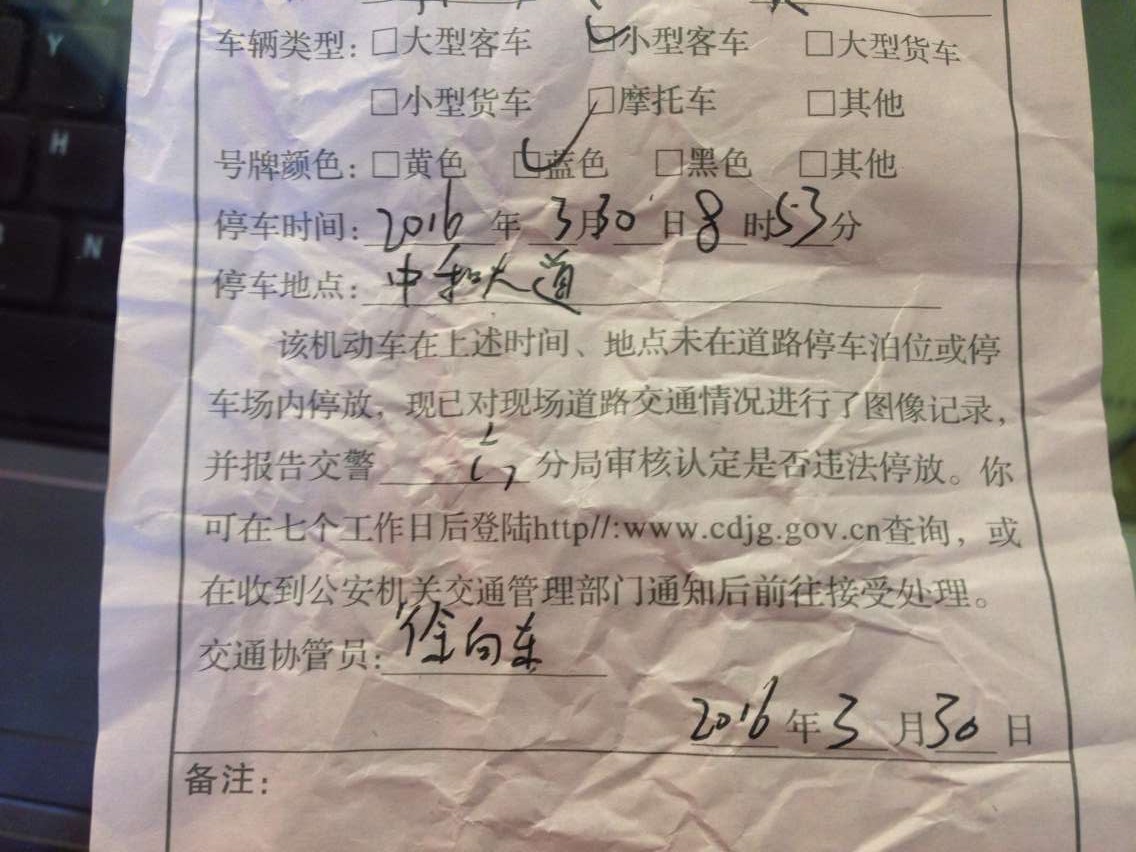 车辆类型：□大型客车 □小型客车 □大型货车
□小型货车 □摩托车 □其他
号牌颜色：□黄色 □蓝色 □黑色 □其他
停车时间：2016 年 3月30 日8 时53分
停车地点：中和大道
该机动车在上述时间、地点未在道路停车泊位或停
车场内停放，现已对现场道路交通情况进行了图像记录，
并报告交警 分局审核认定是否违法停放。你
可在七个工作日后登陆http//:www.cdjg.gov.cn查询，或
在收到公安机关交通管理部门通知后前往接受处理。
交通协管员：徐向东
2016 年 3 月30 日
备注：
Y
H
N